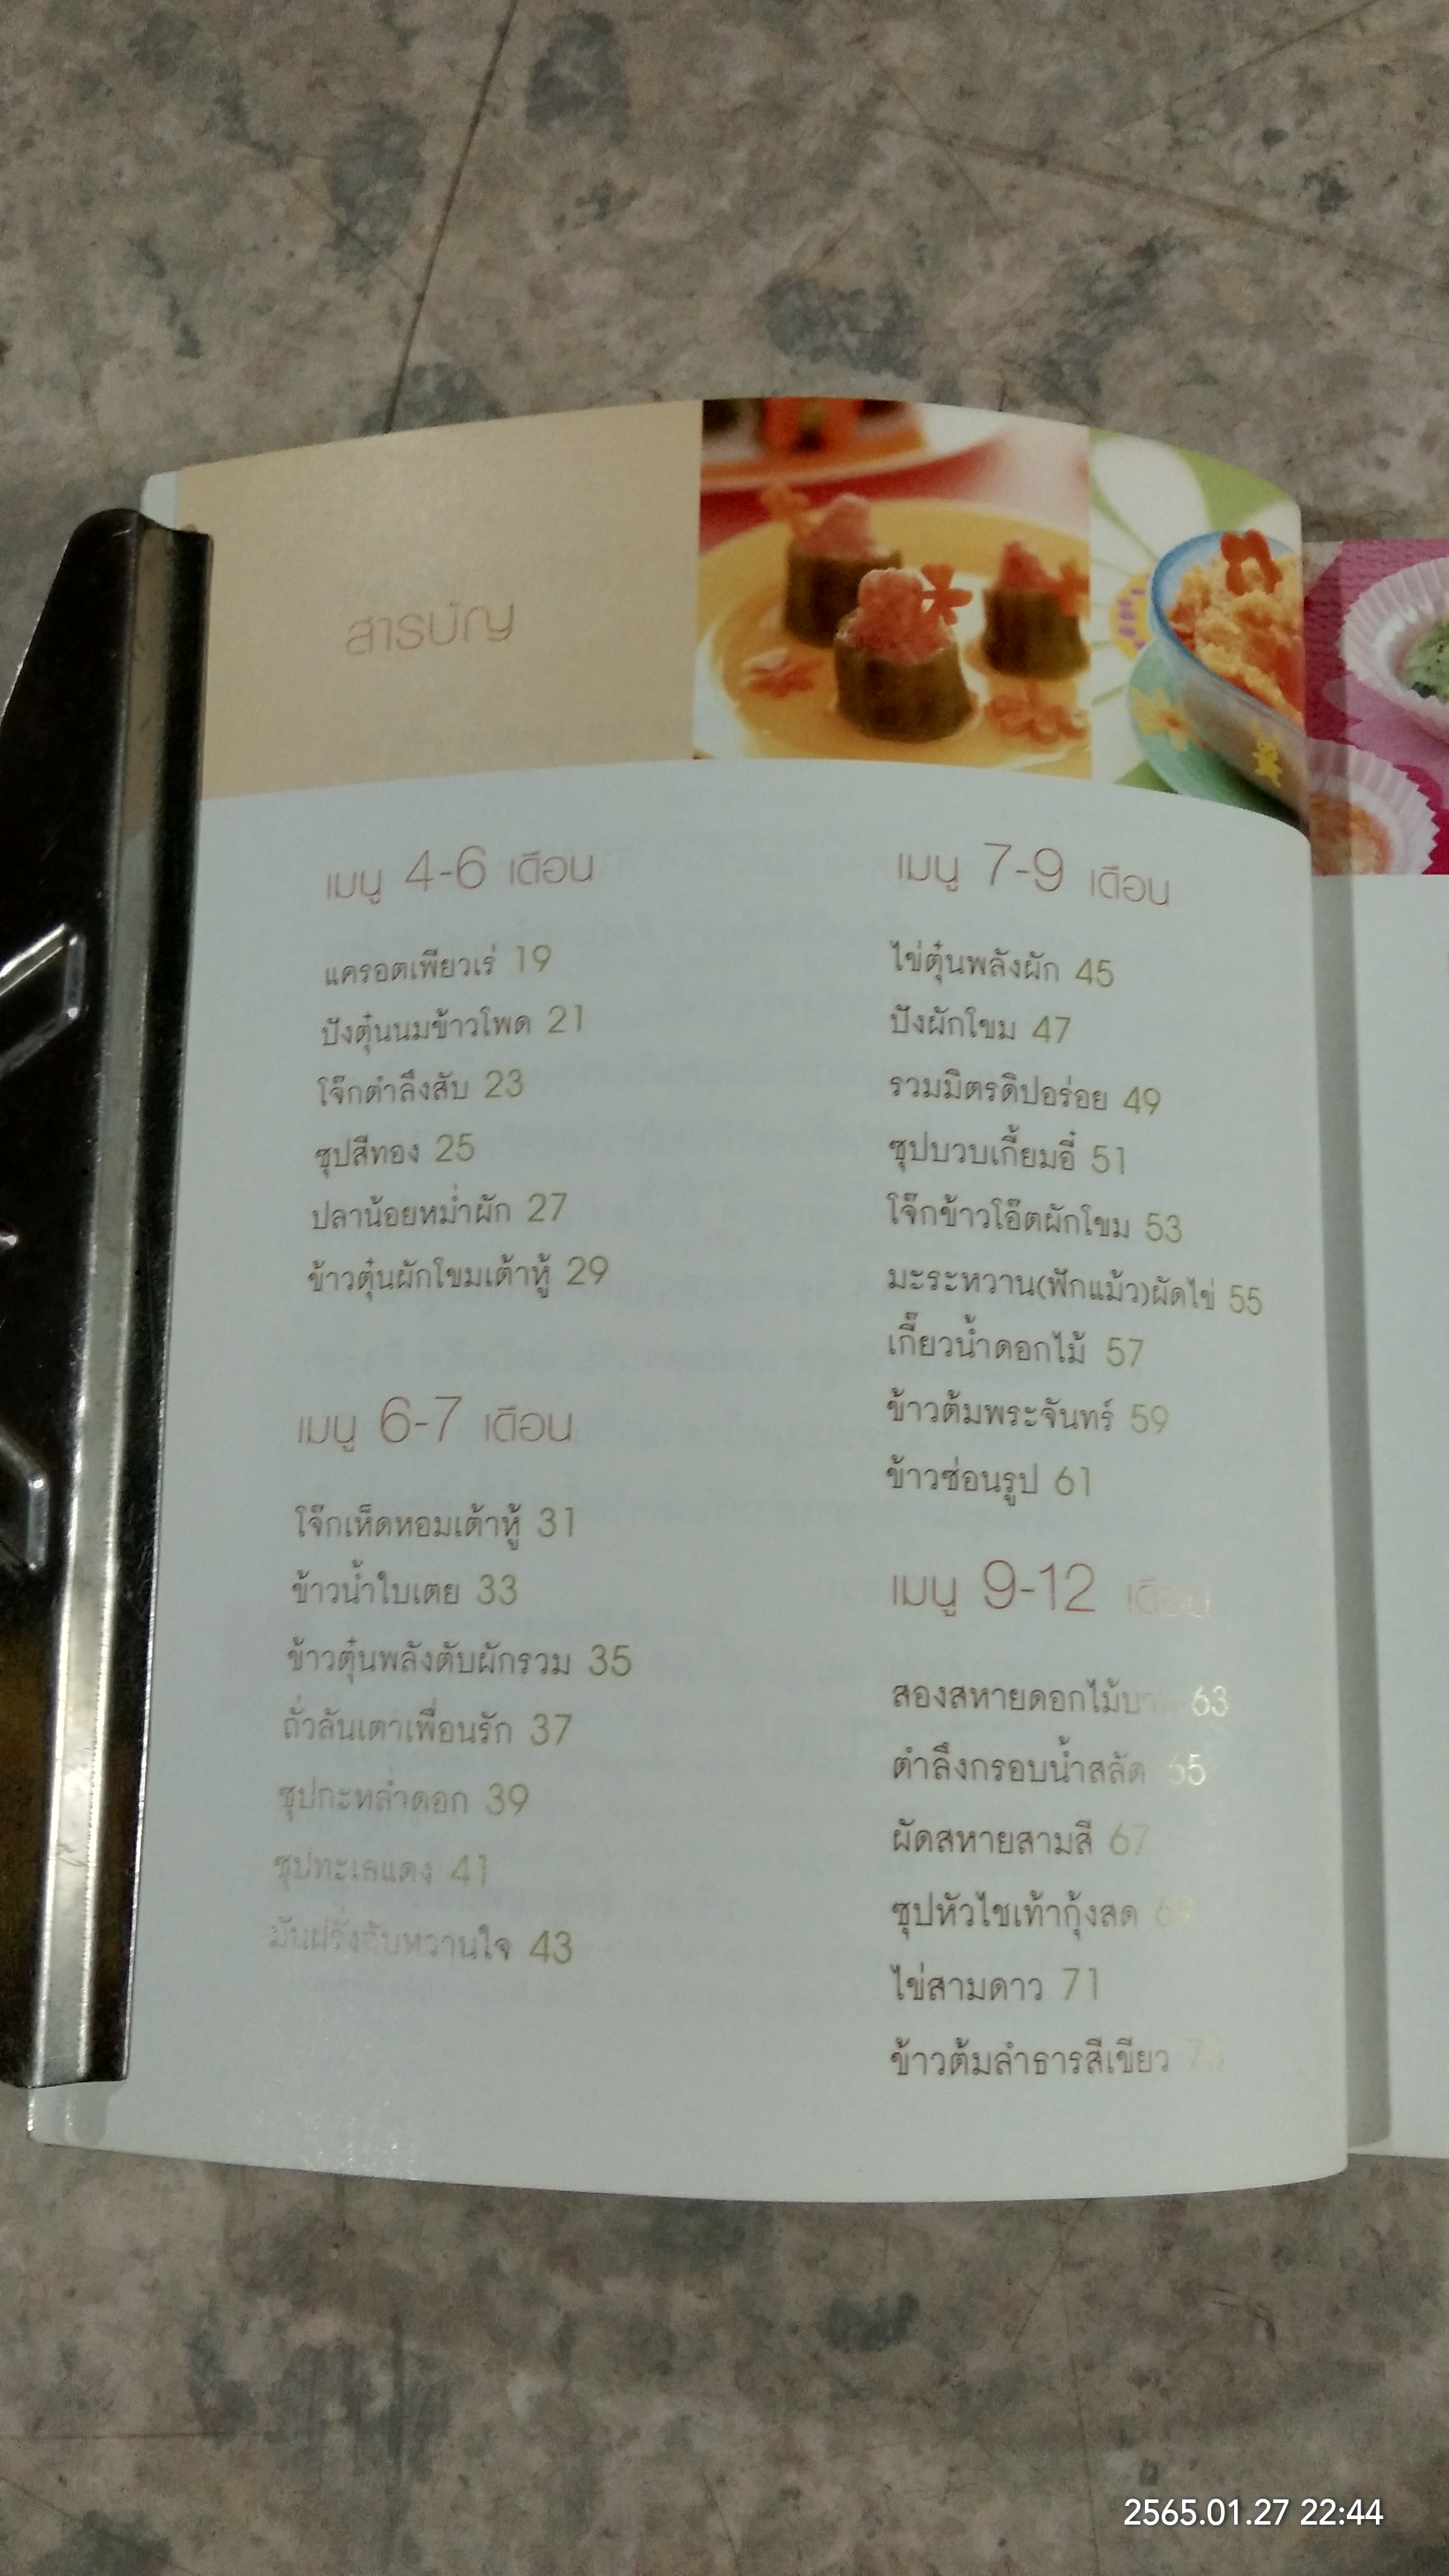 สารบัญ
เมนู 4-6 เดือน
แครอตเพียวเร่ 19
ปังตุ๋นนมข้าวโพด 21
โจ๊กตำลึงสับ 23
ซุปสีทอง 25
ปลาน้อยหม่ำผัก 27
ข้าวตุ๋นผักโขมเต้าหู้ 29
เมนู 6-7 เดือน
โจ๊กเห็ดหอมเต้าหู้ 31
ข้าวน้ำใบเตย 33
ข้าวตุ๋นพลังตับผักรวม 35
ถั่วลันเตาเพื่อนรัก 37
ซุปกะหล่ำดอก 39
ซุปทะเลแดง 41
43
เมนู 7-9 เดือน
ไข่ตุ๋นพลังผัก 45
ปังผักโขม 47
รวมมิตรดิปอร่อย 49
ซุปบวบเกี้ยมอี๋ 51
โจ๊กข้าวโอ๊ตผักโขม 53
มะระหวาน(ฟักแม้ว)ผัดไข่ 55
เกี๊ยวน้ำดอกไม้ 57
ข้าวต้มพระจันทร์ 59
ข้าวซ่อนรูป 61
เมนู 9-12 เดือน
63
ตำลึงกรอบน้ำสลัด 65
ผัดสหายสามสี 67
ซุปหัวไชเท้ากุ้งสด 69
ไข่สามดาว 71
ข้าวต้มลำธารสีเขียว 73
2565.01.27 22:44